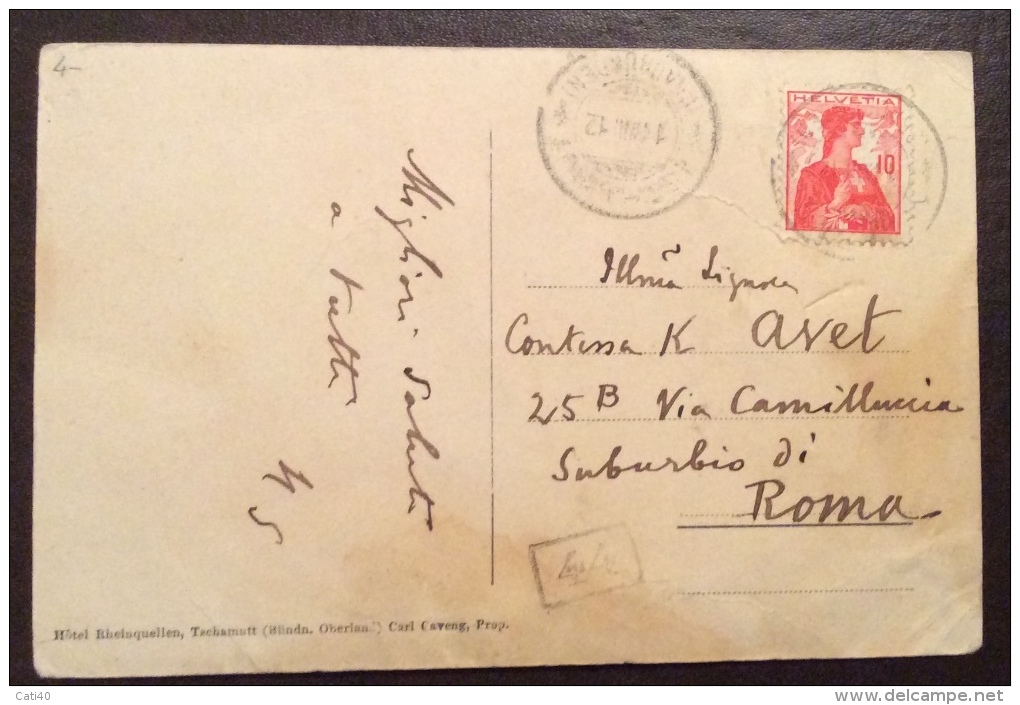 4-
HELVETIA
10
12
Illma Signora
Contessa K Avet
25 B Via Camilluccia
Suburbio di
Roma
Migliori Saluti
a tutti
Hôtel Rheinquellen, Tschamutt (Bündn. Oberland) Carl Caveng, Prop.
Cati40
www.delcampe.net